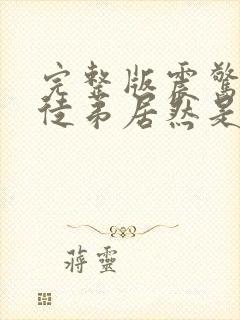 完整版震驚
徒弟居然是
蔣靈